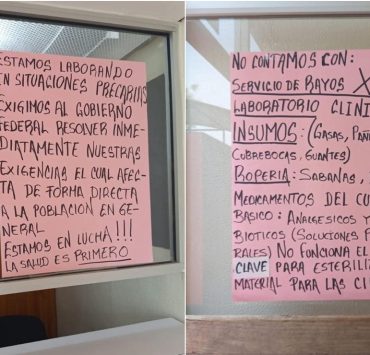 ESTAMOS LABORANDO
EN SITUACIONES PRECARIAS
EXIGIMOS AL GOBIERNO
FEDERAL RESOLVER INME-
DIATAMENTE NUESTRAS
EXIGENCIAS EL CUAL AFEC-
TA DE FORMA DIRECTA
A LA POBLACION EN GE-
NERAL
ESTAMOS EN LUCHA!!!
LA SALUD ES PRIMERO
NO CONTAMOS CON:
SERVICIO DE RAYOS X
LABORATORIO CLINI
INSUMOS: (GASAS, PAÑ
CUBREBOCAS, GUANTES)
ROPERIA: SABANAS,
MEDICAMENTOS DEL CU
BASICO: ANALGESICOS Y
BIOTICOS (SOLUCIONES P
RALES) NO FUNCIONA EL
CLAVE PARA ESTERILI
MATERIAL PARA LAS CI